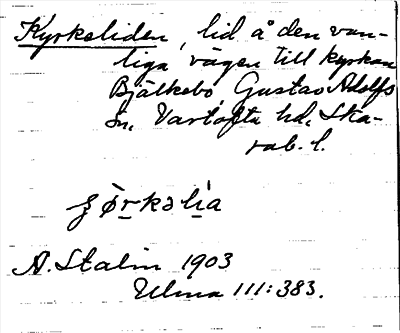 Kyrkeliden, lid å den van-
liga vägen till kyrkan
Bjälkebo, Gustav Adolfs
sn, Vartofta hd, Ska-
rab. l.
A. Stalin 1903
Ulma 111:383.